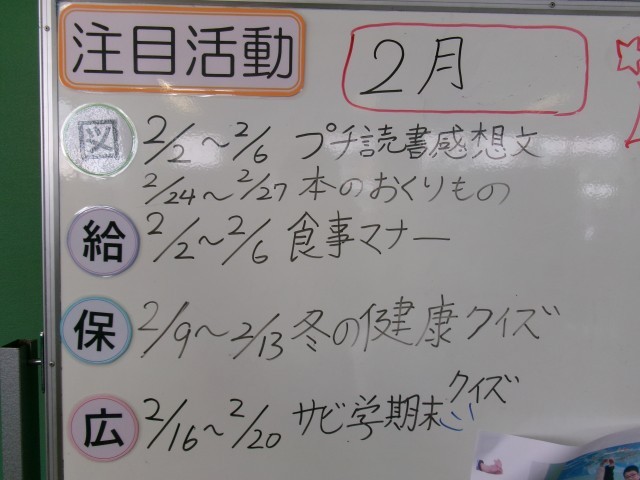 注目活動
2月
図 2/2～2/6 プチ読書感想文
2/24～2/27 本のおくりもの
給 2/2～2/6 食事マナー
保 2/9～2/13 冬の健康クイズ
広 2/16～2/20 サビ学期末クイズ